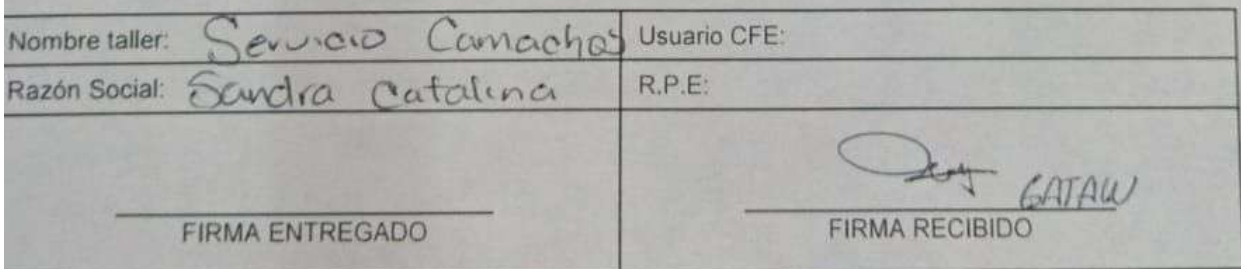 Nombre taller: Servicio Camachos Usuario CFE:
Razón Social: Sandra Catalina R.P.E:
GATAW
FIRMA ENTREGADO FIRMA RECIBIDO